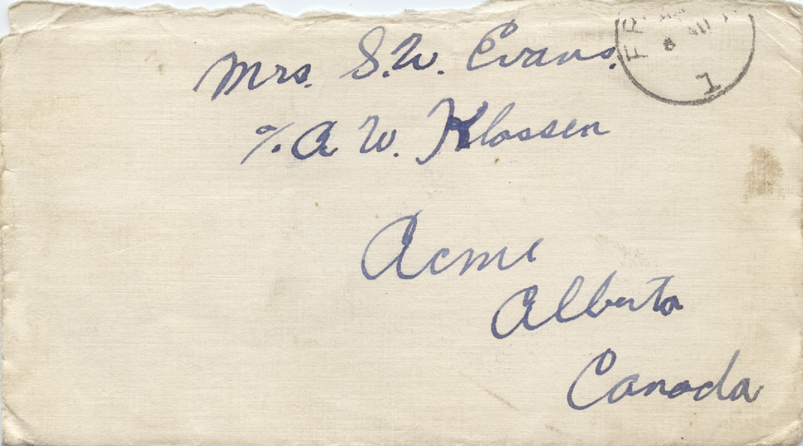 Mrs. S.W. Evans.
% A W. Klassen
Acme
Alberta
Canada